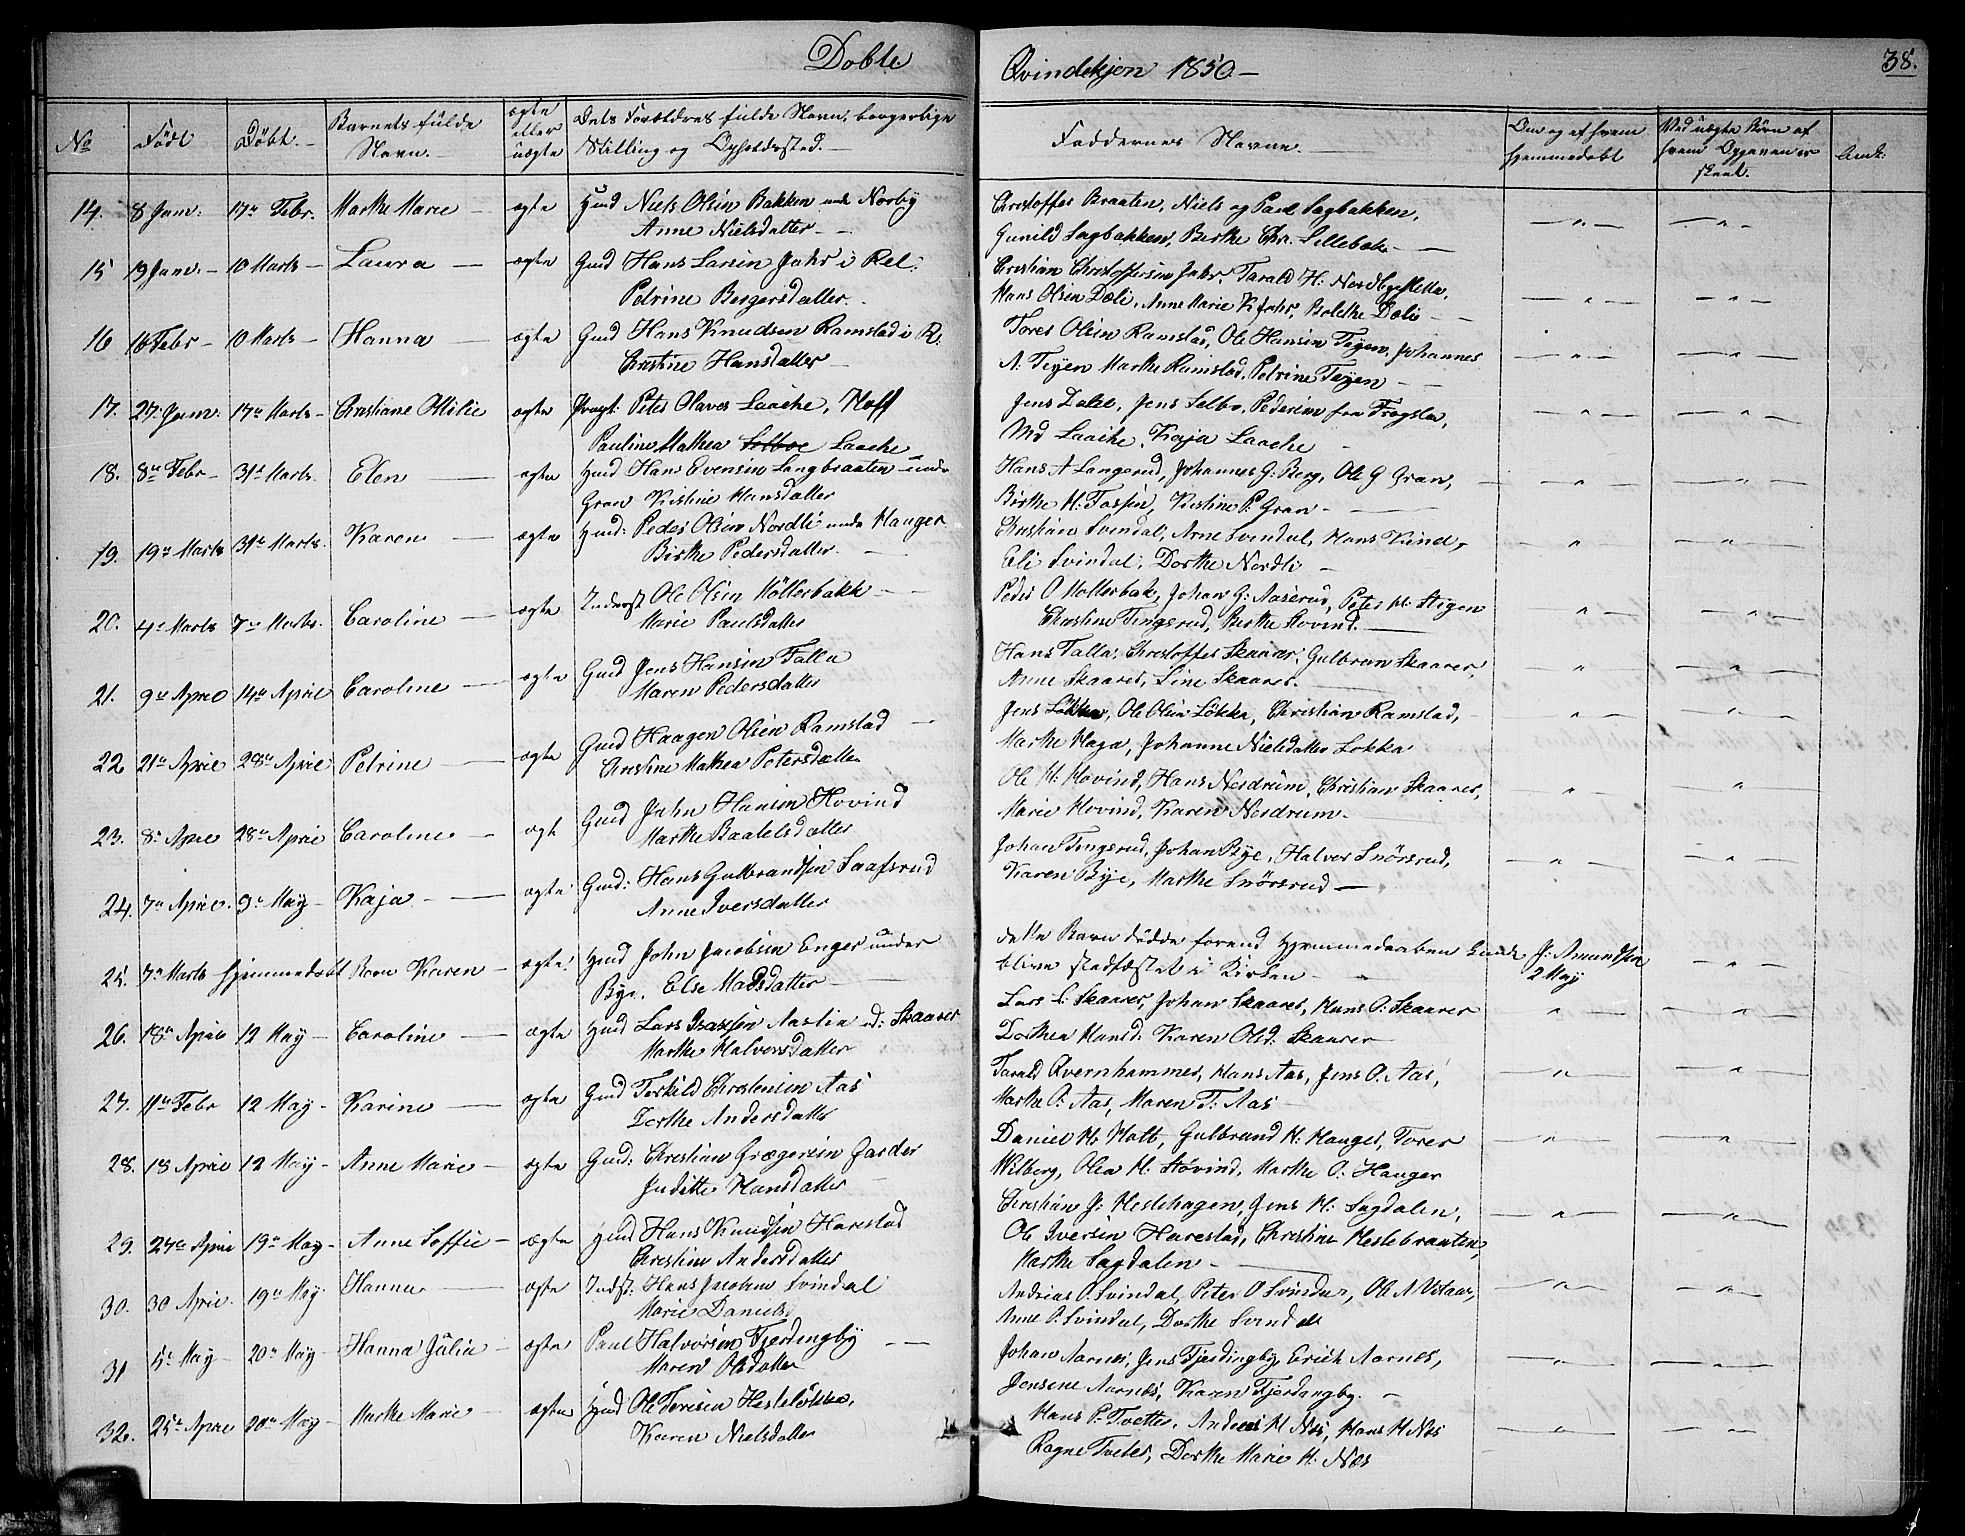 Döbte
Qvindekjøn 1850.—
38.
No
Født
Döbt.—
Barnets fulde
Navn.—
ægte
eller
uægte
Dets Forældres fulde Navn, borgerlige
Stilling og Opholdssted.—
Faddernes Navne.
Om og af hvem
hjemmedøbt
Ved uægte Börn af
hvem Opgaven er
skeet.
Ank:
14. 8 Janr: 17de Febr. Marthe Marie — ægte Hmd Niels Olsen Bakken unde Norby
Anne Nielsdatter —
Christoffer Braaten, Niels og Paul Sagbakken,
Gunild Sagbakken, Berthe Chr. Lillebæk —
15 19 Janr. — 10 Marts — Laura — ægte Gmd Hans Larsen Jahr i Ræl:
Petrine Bergersdatter.
Christian Christoffersen Jahr, Tarald H: Nordbyeslette,
Hans Olsen Dæli, Anne Marie K Jahr, Bolethe Dæli —
16 16 Febr — 10 Marts — Hanna — ægte Gmd Hans Knudsen Ramstad i R.
Christine Hansdatter —
Tores Olsen Ramstad, Ole Hansen Teyen, Johannes
A. Teyen Marthe Ramstad, Petrine Teyen —
17. 27. Janr: 17de Marts — Christiane Ottilie ægte Peter Olaves Laache, Hoff
Pauline Mathea Selboe Laache
Jens Selbo, Pedersen fra Frogstad,
Md Laache, Kaja Laache —
18. 8de Febr — 31te Marts. Elen — ægte Hmd Hans Evensen Langbraaten — unde
Gran Kirstine Hansdatter
Hans A Langerud, Johannes G: Berg, Ole G Gran,
Birthe H. Fossen, Kirstine P. Gran —
19. 19de Marts 31te Marts. Karen — ægte Hmd: Peder Olsen Nordli unde Hauger
Birthe Pedersdatter. —
Christian Svindal, Arne Svindal, Hans Kind,
Eli Svindal, Dorthe Nordli —
20. 4de Marts 7de Marts. Caroline — ægte Inderst Ole Olsen Möllerbakk —
Marie Paulsdatter
Peder O Mollerbak, Johan G: Aaserud, Peter H: Stigen
Christine Tingsrud, Berthe Hovind. —
21. 9de April 14de April Caroline — ægte Gmd Jens Hansen Falla
Maren Pedersdatter
Hans Falla, Christoffer Skaarer, Gulbran Skaarer,
Anne Skaarer, Line Skaarer.
22 21de April 28de April Petrine — ægte Gmd Haagen Olsen Ramstad —
Christine Mathea Petersdatter
Jens Løkka, Ole Olsen Løkka, Christian Ramstad,
Marthe Haga, Johanne Nielsdatter Løkka
23. 8de April 28de April Caroline — ægt Gmd John Hansen Hovind
Marthe Baatelsdatter
Ole H: Hovind, Hans Nordrum, Christian Skaarer,
Marie Hovind, Karen Nordrum —
24. 7de April. 9de May — Kaja — ægte Gmd: Hans Gulbrandsen Saafsrud
Anne Iversdatter
Johan Tingsrud, Johan Bye, Halvor Snörsrud,
Karen Bye, Marthe Snörsrud —
25. 7de Marts hjemmedøbt Barn Karen — ægte Hmd John Jacobsen Enger under
Bye, Else Madsdatter —
dette Barn dødde forend Hjemmedaaben kunde
blive stadfæstet i Kirken —
J: Amundsen
2 May
26. 18de April 12 May — Caroline — ægte Hmd Lars Isaksen Aastia ud: Skaarer
Marthe Halvorsdatter
Lars L: Skaarer, Johan Skaarer, Hans O: Skaarer
Dorthea Hansd: Karen Olsd. Skaarer
27. 11te Febr 12 May — Karine — ægte Gmd Terkild Christensen Aas
Dorthe Andersdatter
Tarald Qvernhammer, Hans Aas, Jens O. Aas,
Marthe O. Aas, Maren T: Aas
28. 18 April 12 May — Anne Marie — ægte Gmd: Christian Grægersen Garder
Juditte Hansdatter —
Daniel H. Holt, Gulbrand H: Hauger, Torer
Wilberg, Olea H. Hövind, Marthe O: Hauger
29. 27de April 19de May — Anne Soffie — ægte Hmd Hans Knudsen Harestad
Christine Andersdatter
Christian J: Heslehagen, Jens H: Sagdalen,
Ole Iversen Harestad, Christine Heslebraaten,
Marthe Sagdalen —
30. 30 April. 19de May Hanna — ægte Indst: Hans Jacobsen Svindal
Marie Daniels
Andreas O. Svindal, Peter O Svindal, Ole A Vilaar,
Anne O. Svindal, Dorthe Svindal
31 5te May — 20de May — Hanna Julia — ægte Paul Halvorsen Fjerdingby —
Maren Olsdatter
Johan Aarnes, Jens Fjerdingby, Erich Aarnes,
Jensene Aarnes, Karen Fjerdingby. —
32. 25de April 20de May — Marthe Marie — ægte Hmd Ole Toresen Hesteløkka,
Karen Nielsdatter
Hans P. Tveter, Anders H Næs, Hans H Næs
Ragne Tveter, Dorthe Marie H. Næs